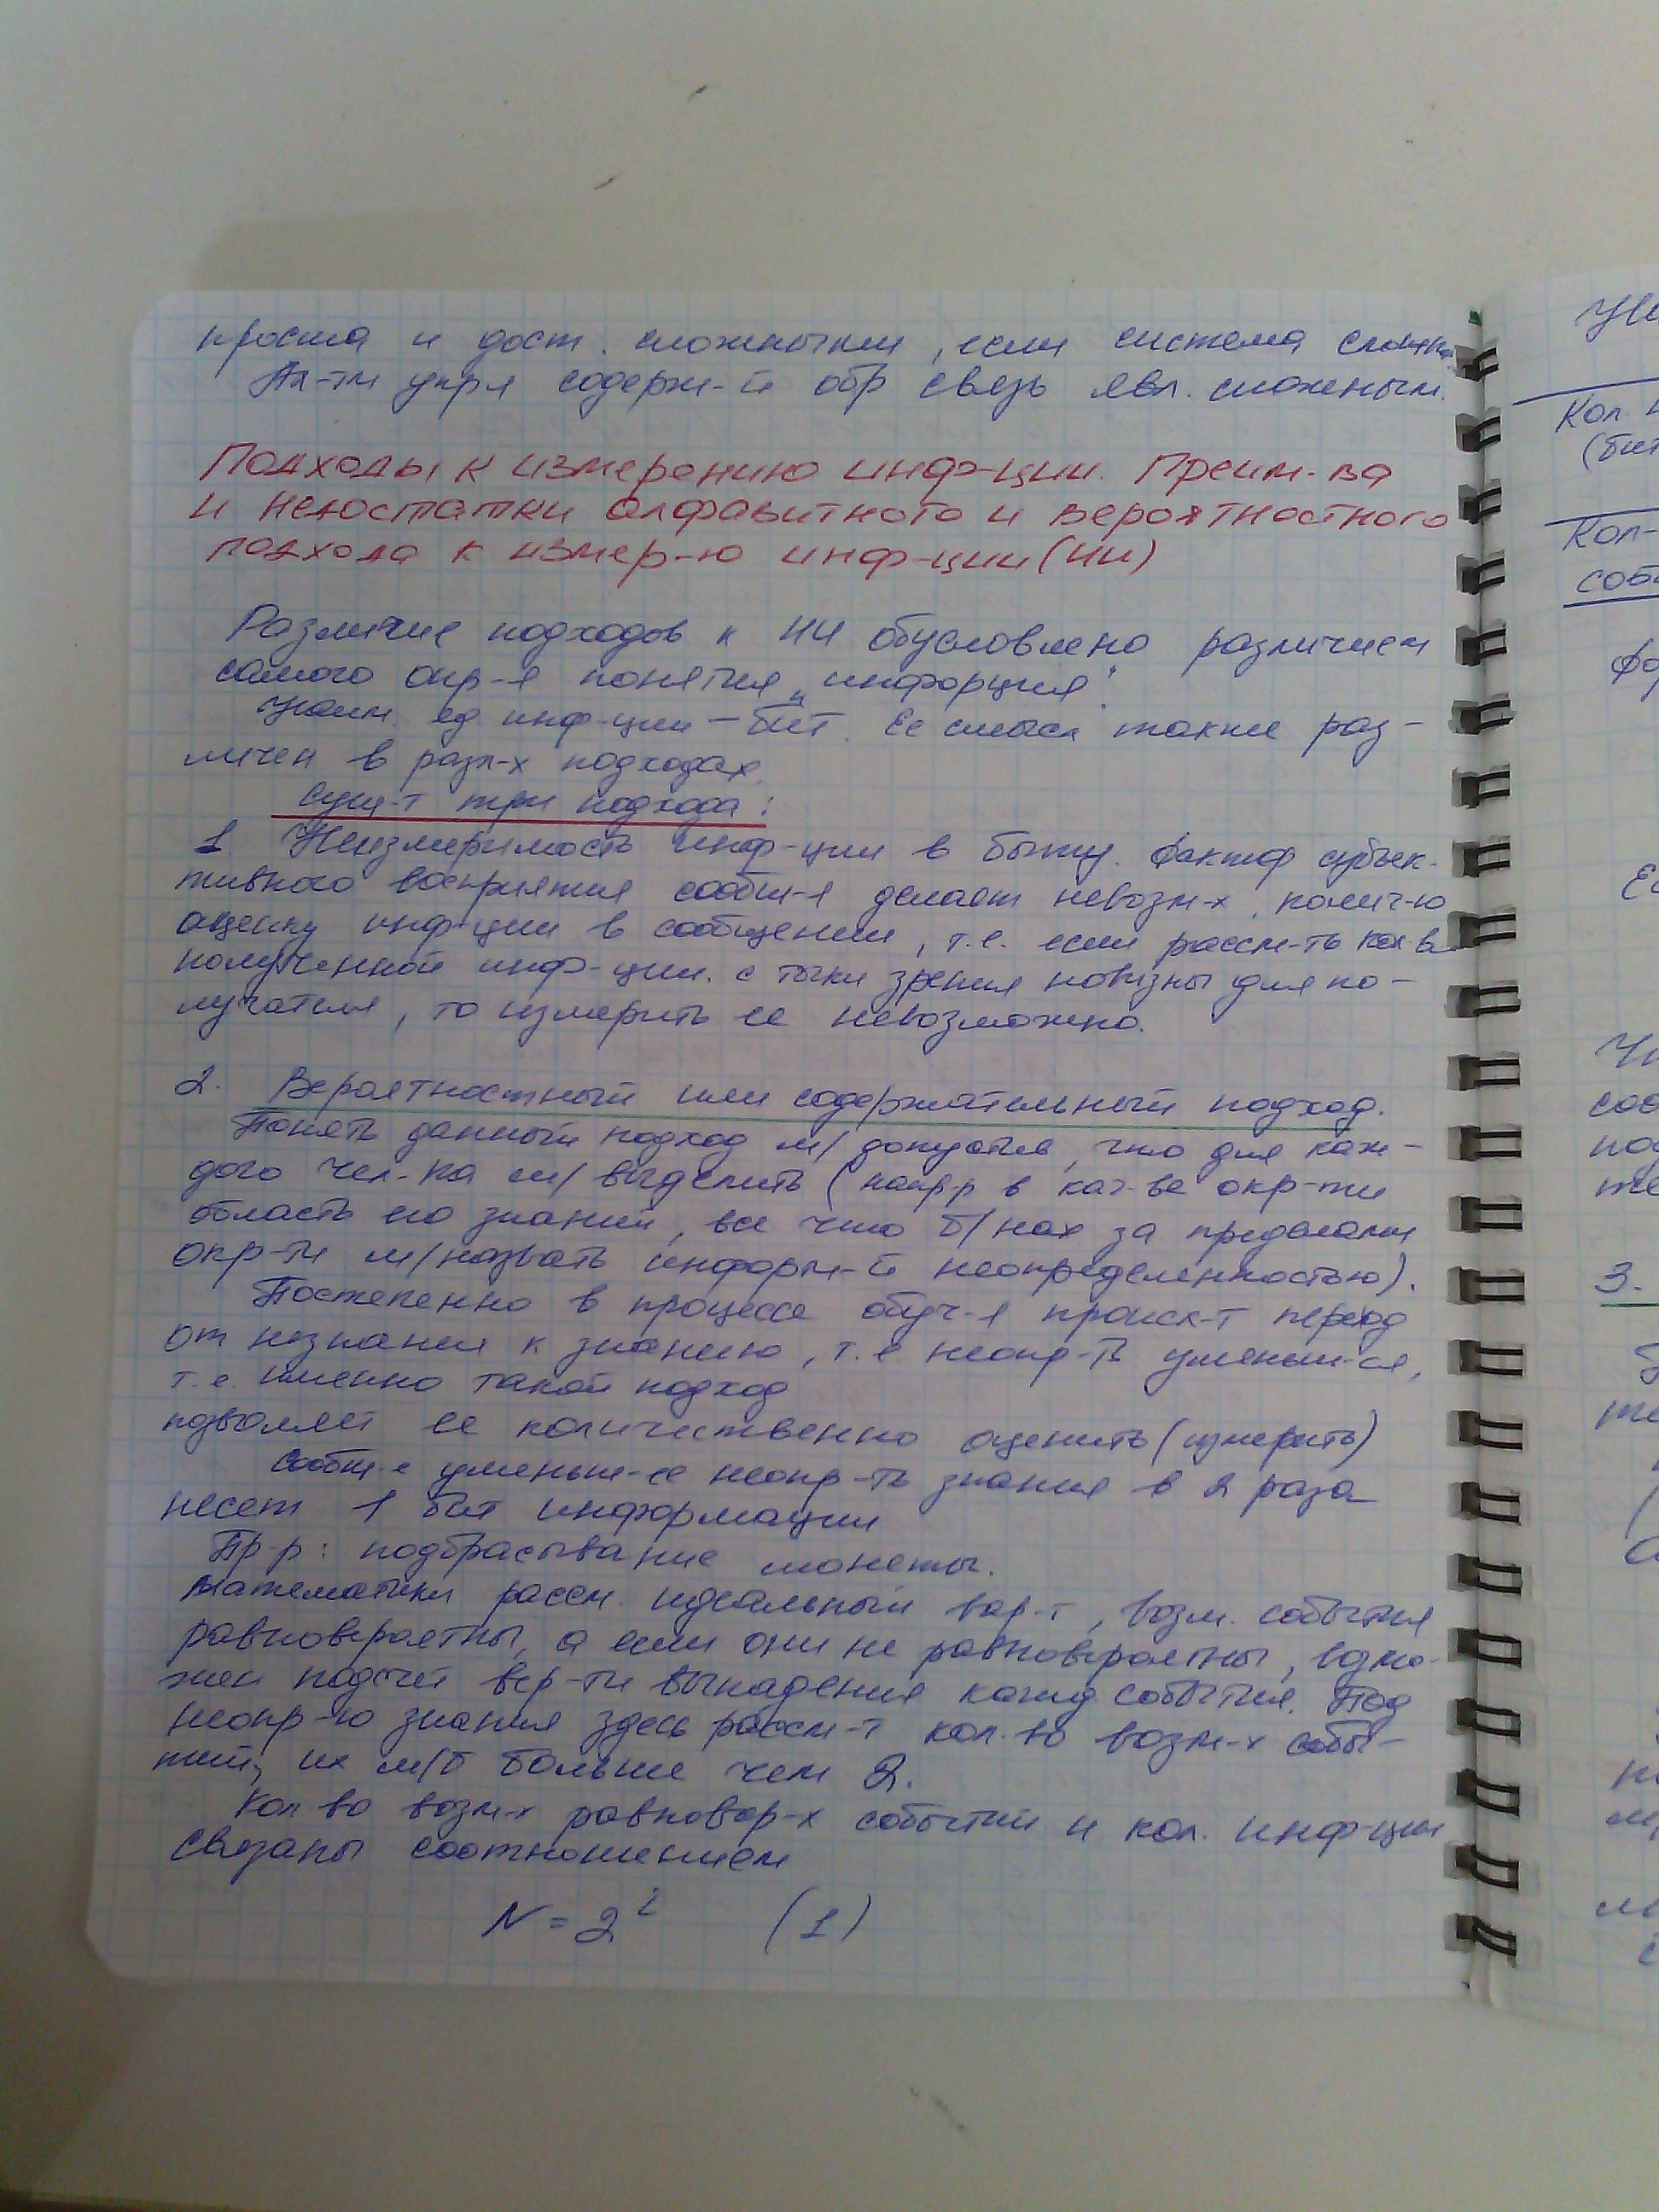 проста и дост. сложными, если система сложна
Ал-тм упр-я содерж-й обр связь явл. сложным.
Подходы к измерению инф-ции. Преим-ва
и недостатки алфавитного и вероятностного
подхода к измер-ю инф-ции (ИИ)
Различие подходов к ИИ обусловлено различием
самого опр-я понятия „информция“.
Наим. ед. инф-ции – бит. Ее смысл также раз-
личен в разл-х подходах.
Сущ-т три подхода:
1. Неизмеримость инф-ции в быту. Фактор субъек-
тивного восприятия сообщ-я делает невозм-х колич-ю
оценку инф-ции в сообщении, т.е. если рассм-ть кол-во
полученной инф-ции. с точки зрения новизны для по-
лучателя, то измерить ее невозможно.
2. Вероятностный или содержательный подход.
Понять данный подход м/ допустив, что для каж-
дого чел-ка м/ выделить (напр-р в кач-ве окр-ти
область его знаний, все что б/ нах за пределами
окр-ти м/назвать информ-й неопределенностью).
Постепенно в процессе обуч-я происх-т переход
от незнания к знанию, т.е. неопр-ть уменьш-ся,
т.е. именно такой подход
позволяет ее количественно оценить (измерить)
Сообщ-е уменьш-ее неопр-ть знания в 2 раза
несет 1 бит информации
Пр-р: подбрасывание монеты.
Математики рассм. идеальный вар-т, возм. события
равновероятны, а если они не равновероятны, возмо-
жен подсчет вер-ти выпадения кажд. события. Под
неопр-ю знания здесь рассм-т кол-во возм-х собы-
тий, их м/б больше чем 2.
Кол во возм-х равновер-х событий и кол. инф-ции
связаны соотношением
N = 2^i (1)
Кол.
(бит
Кол-
3.